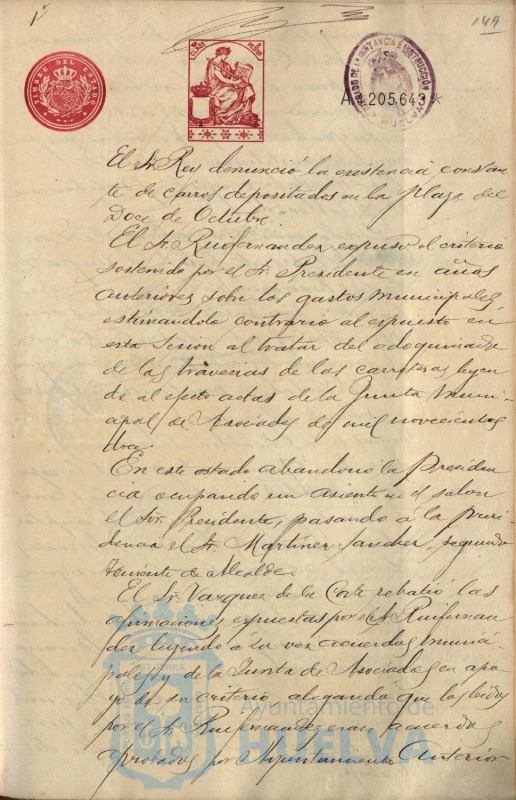 149
TIMBRE DEL ESTADO
CLASE
JUZGADO DE 1ª INSTANCIA E INSTRUCCIÓN
HUELVA
A 205,643 *
El Sr. Rey denunció la existencia constan
te de carros depositados en la plaza del
Doce de Octubre".
El Sr. Ruifernandez expuso el criterio
sostenido por el Sr. Presidente en años
anteriores sobre los gastos municipales,
estimándola contrario al expuesto en
esta sesión al tratar del adoquinado
de las travesias de las carreteras leyen
do al efecto actas de la Junta muni-
cipal de Asociados de mil novecientos
doce.
En este estado abandonó la Presiden
cia ocupando un asiento en el salon
el Sor. Presidente, pasando á la presi
dencia el Sr. Martinez Sanchez, segundo
teniente de Alcalde.
El Sr. Vazquez de la Corte rebatió las
afirmaciones expuestas por el Sr. Ruifernan
dez leyendo a la vez acuerdos munici
pales y de la Junta de Asociados en apo
yo de su criterio alegando que los leidos
por el Sr. Ruifernandez eran acuerdos
aprobados por Ayuntamiento anterior
Ayuntamiento de
HUELVA